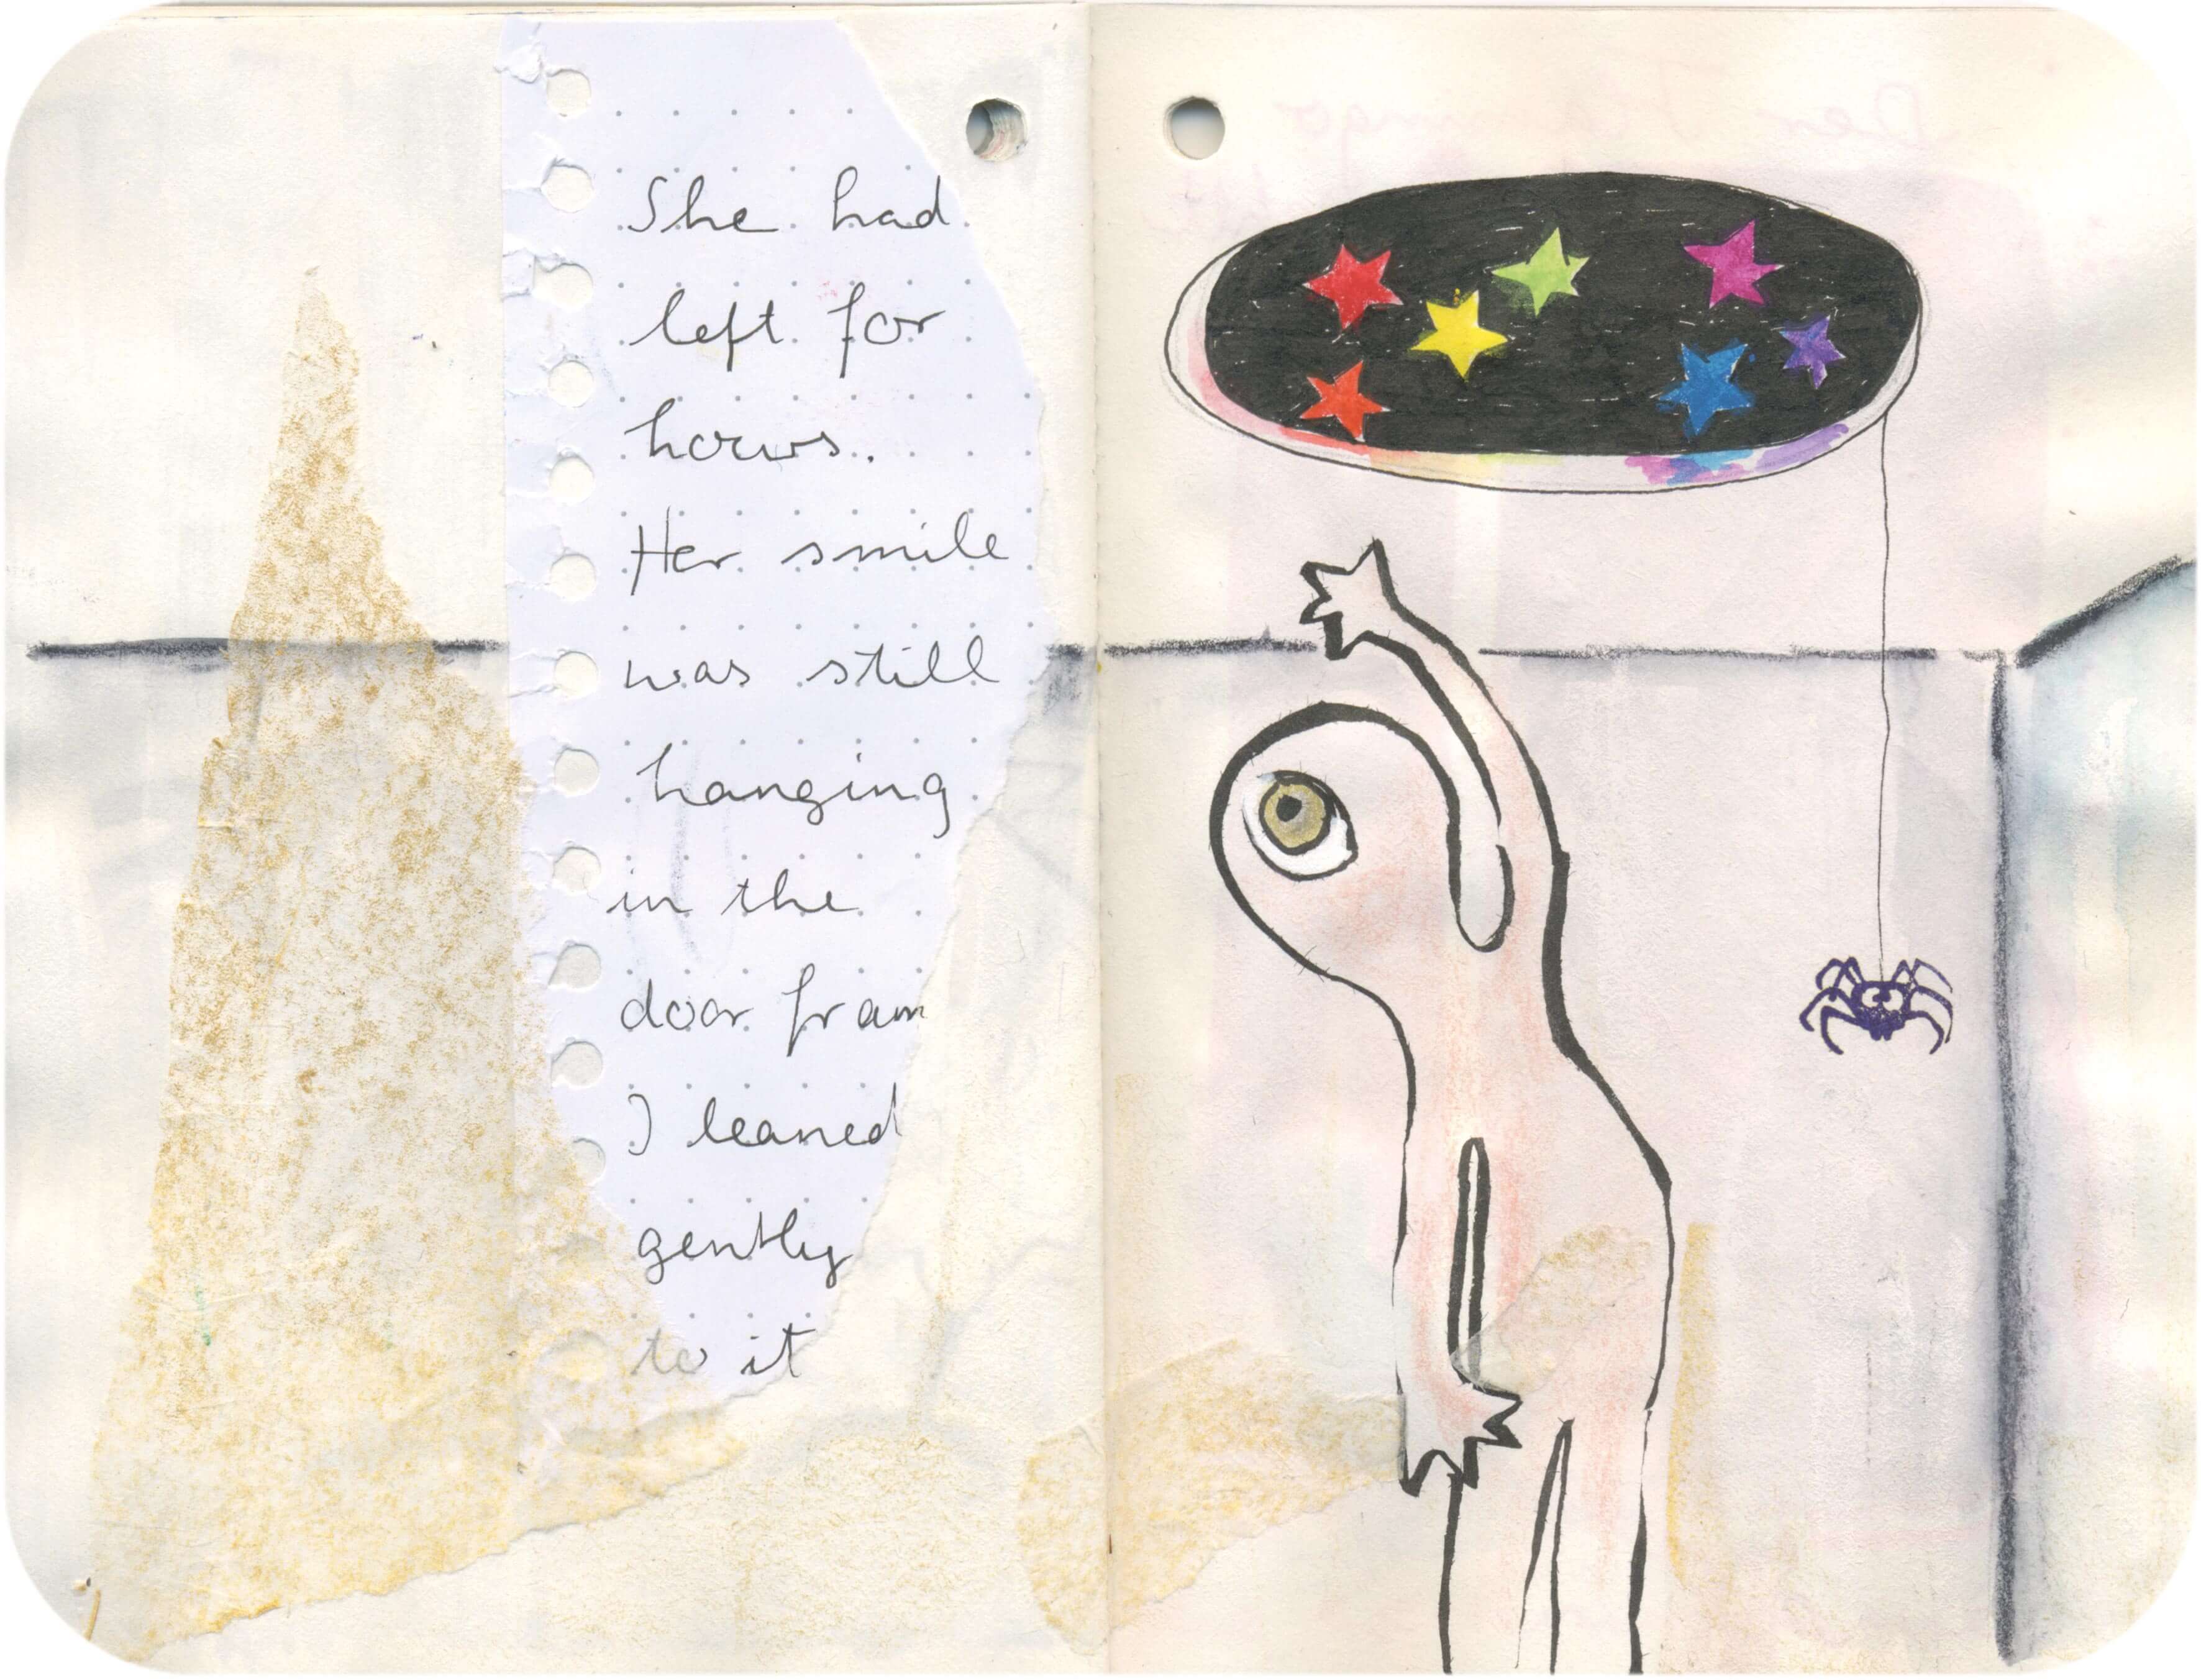 She had
left for
hours.
Her smile
was still
hanging
in the
door fram
I leaned
gently
to it